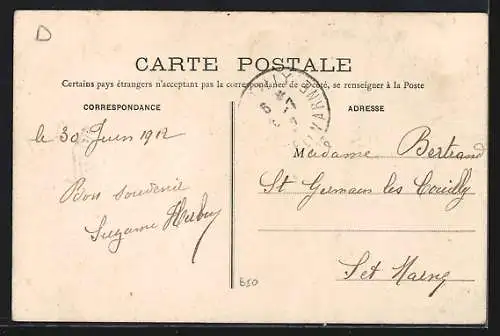 D
CARTE POSTALE
Certains pays étrangers n'acceptant pas la correspondance de ce côté, se renseigner à la Poste
CORRESPONDANCE
ADRESSE
le 30 Juin 1912
Madame Bertrand
Bon souvenir
St Germain les Couilly
Suzanne
Set Marne
B10